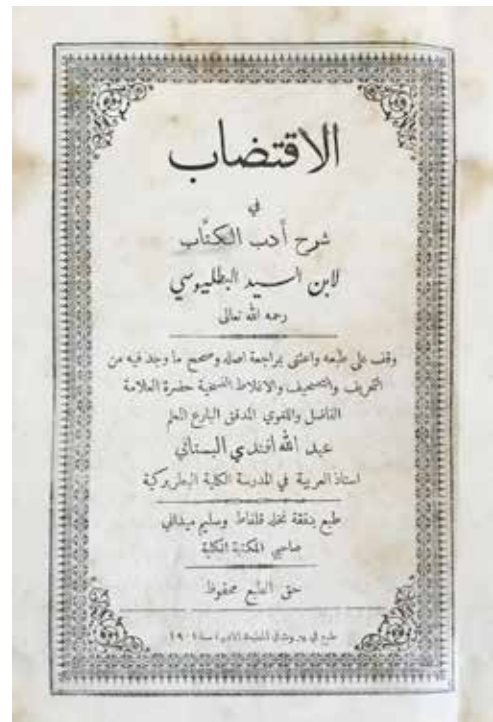 الاقتضاب
في
شرح أدب الكتّاب
لابن السيد البطليوسي
رحمه الله تعالى
وقف على طبعه واعتنى بمراجعة اصله وصحح ما وجد فيه من
التحريف والتصحيف والاغلاط النسخية حضرة العلامة
الفاضل واللغوي المدقق البارع المعلم
عبد الله أفندي البستاني
استاذ العربية في المدرسة الكلية البطريركية
طبع بنفقة نخله قلفاط وسليم ميداني
صاحبي المكتبة الكلية
حق الطبع محفوظ
طبع في بيروت في المطبعة الادبية سنة ١٩٠١